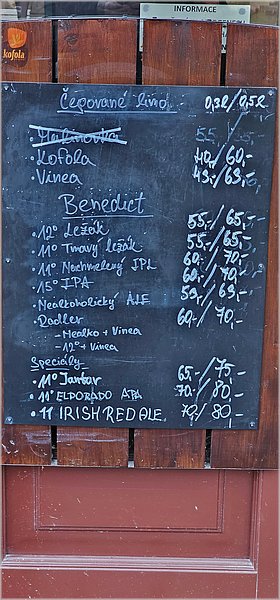 INFORMACE
kofola
Čepované limo 0,3l/0,5l
• Malinovka 55
• Kofola 40,-/60,-
• Vinea 43,-/63,-
Benedict
• 12° Ležák 55,-/65,-
• 11° Tmavý ležák 55,-/65,-
• 11° Nachmelený IPL 60,-/70,-
• 15° IPA 60,-/70,-
• Nealkoholický ALE 59,-/69,-
• Radler 60,-/70,-
- Nealko + Vinea
- 12° + Vinea
Speciály
• 11° Jantar 65,-/75,-
• 11° ELDORADO APA 70,-/80,-
• 11 IRISH RED ALE 70/80,-